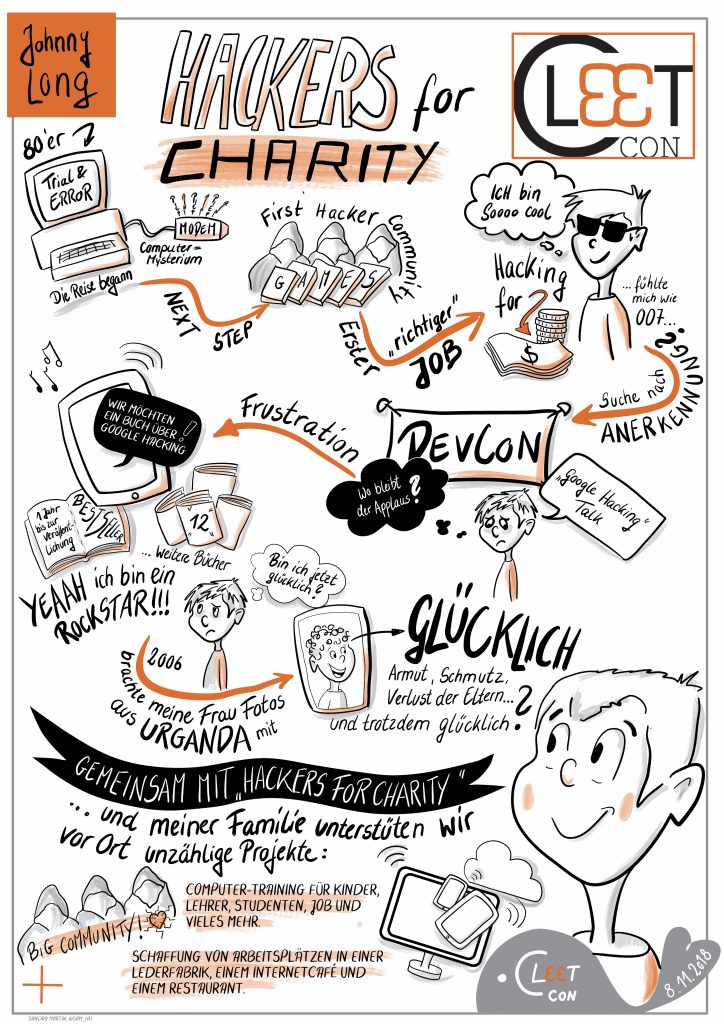 Johnny
Long
HACKERS for
CHARITY
CLEET
CON
80'er
Trial &
ERROR
MODEM
Computer=
Mysterium
Die Reise begann
NEXT
STEP
First Hacker Community
GAMES
Erster
„richtiger"
JOB
ICH bin
Soooo cool
Hacking
for
$
...fühlte
mich wie
007...
Suche nach
ANERKENNUNG?
DEVCON
Wo bleibt
der Applaus?
„Google Hacking"
Talk
Frustration
WIR MÖCHTEN
EIN BUCH ÜBER
GOOGLE HACKING!
1 Jahr
bis zur
Veröffent-
lichung
BESTSELLER
12
... weitere Bücher
YEAAH ich bin ein
ROCKSTAR!!!
Bin ich jetzt
glücklich?
2006
brachte meine Frau Fotos
aus URGANDA mit
GLÜCKLICH
Armut, Schmutz,
Verlust der Eltern...
und trotzdem glücklich?
GEMEINSAM MIT „HACKERS FOR CHARITY"
... und meiner Familie unterstüten wir
vor Ort unzählige Projekte:
BiG COMMUNITY!
COMPUTER-TRAINING FÜR KINDER,
LEHRER, STUDENTEN, JOB UND
VIELES MEHR.
SCHAFFUNG VON ARBEITSPLÄTZEN IN EINER
LEDERFABRIK, EINEM INTERNETCAFÉ UND
EINEM RESTAURANT.
CLEET
CON
8.11.2018